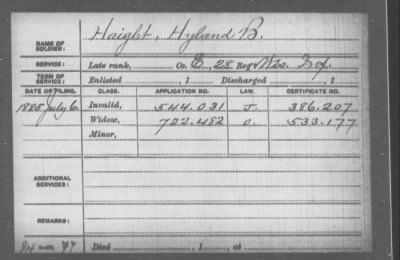 NAME OF SOLDIER: Haight, Hyland B.
SERVICE: Late rank, Co. E, 28 Reg't Wis. Inf.
TERM OF SERVICE: Enlisted , 1 Discharged , 1
DATE OF FILING. CLASS. APPLICATION NO. LAW. CERTIFICATE NO.
1885 July 6. Invalid, 544.031 J. 386.207
Widow, 722.482 O. 533.177
Minor,
ADDITIONAL SERVICES:
REMARKS:
Died , 1 , at